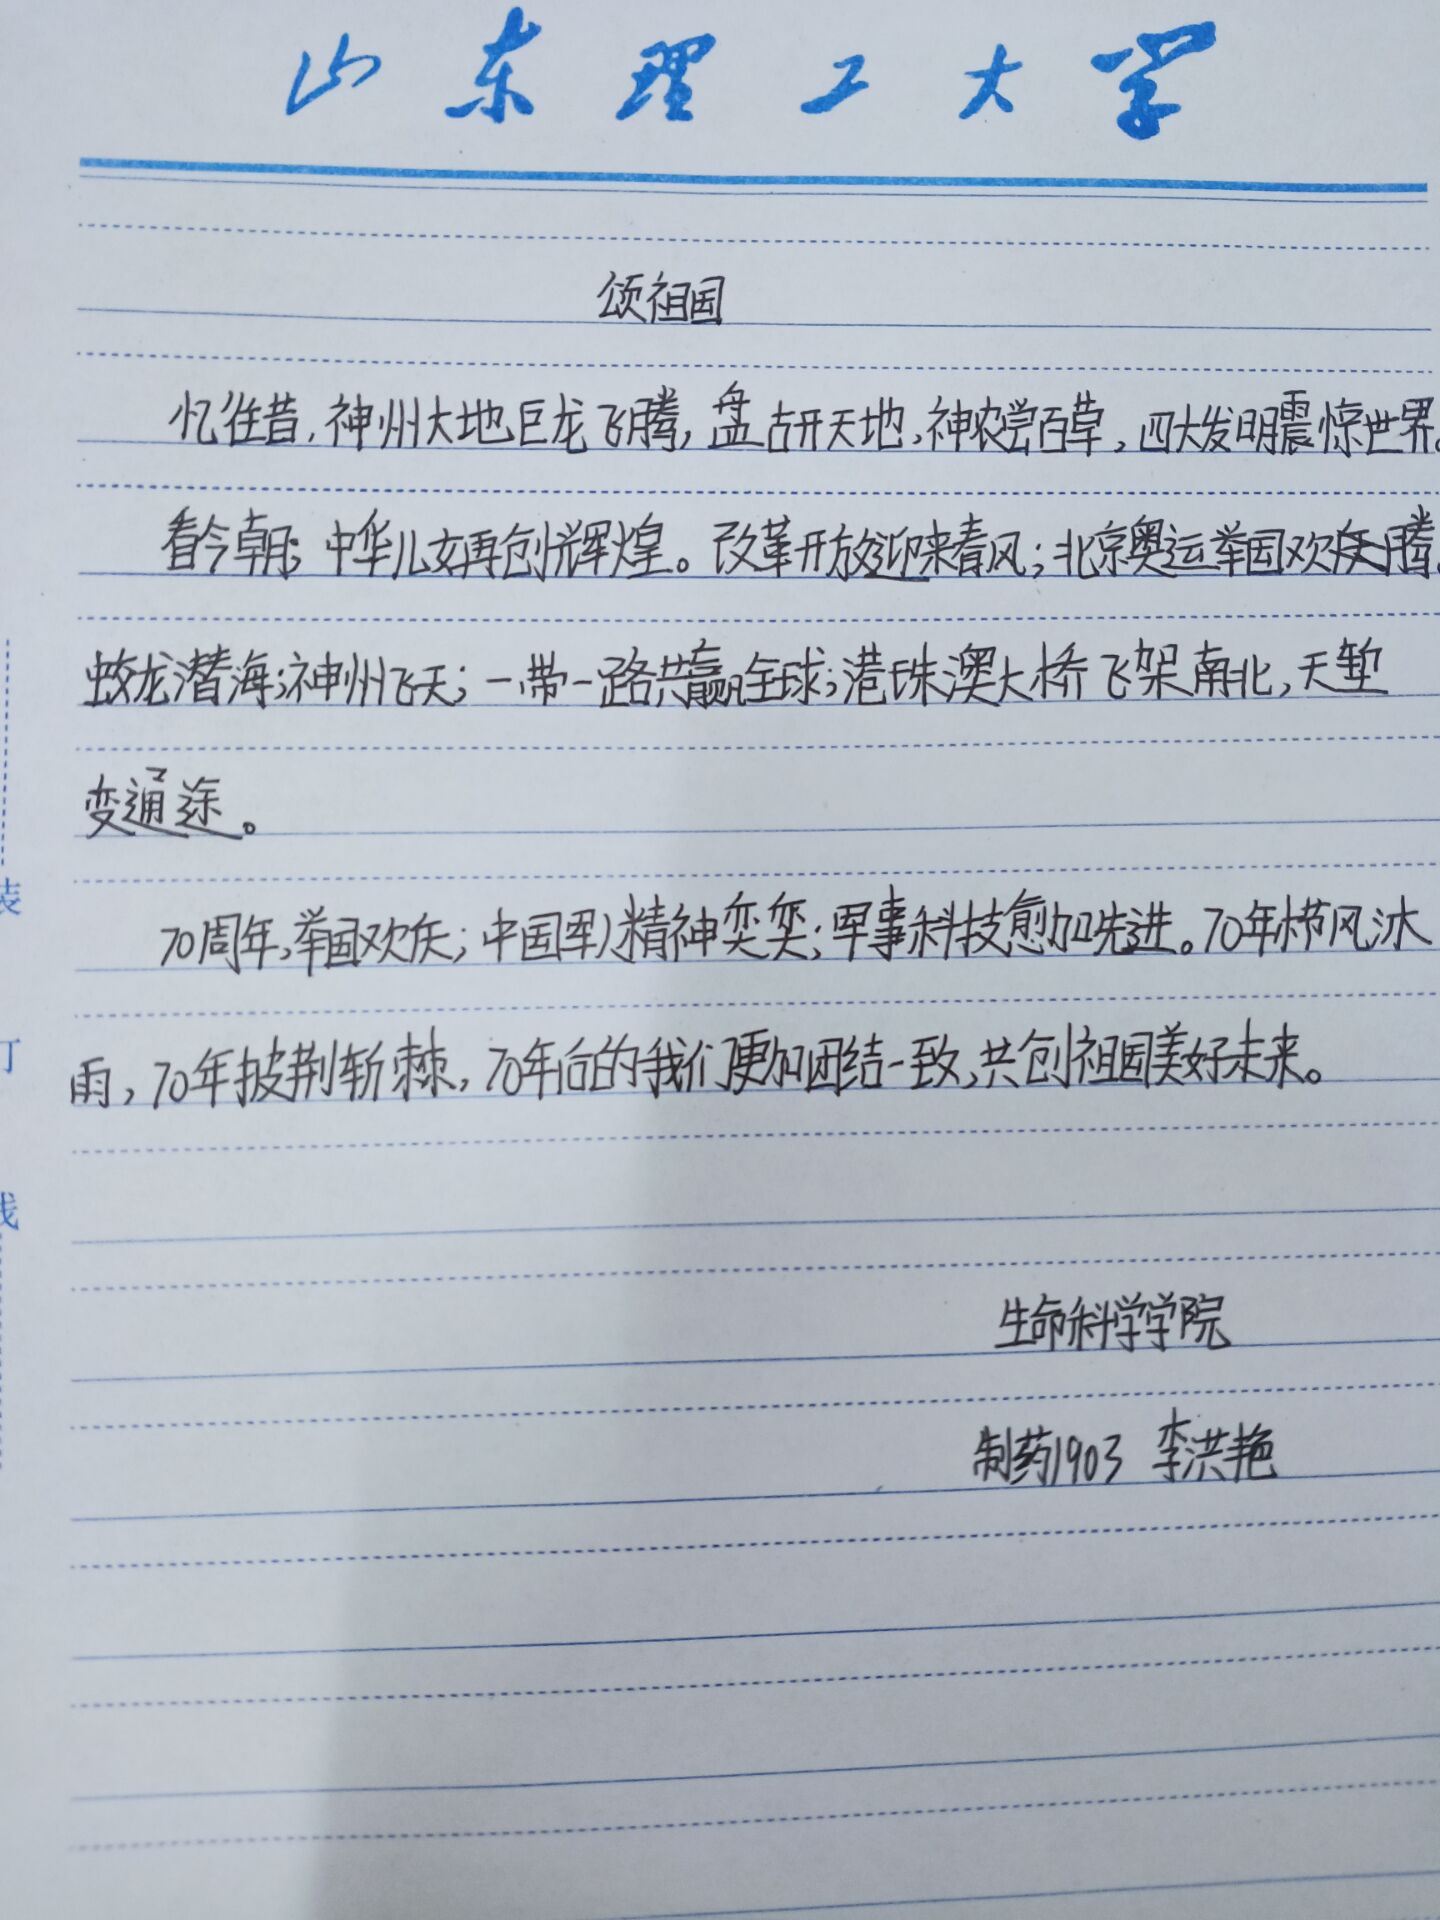 山东理工大学
颂祖国
忆往昔,神州大地巨龙飞腾,盘古开天地,神农尝百草,四大发明震惊世界。
看今朝,中华儿女再创辉煌。改革开放迎来春风;北京奥运举国欢庆腾。
蛟龙潜海;神州飞天;一带一路共赢全球;港珠澳大桥飞架南北,天堑
变通途。
70周年,举国欢庆;中国军人精神奕奕;军事科技愈加先进。70年栉风沐
雨,70年披荆斩棘,70年后的我们更加团结一致,共创祖国美好未来。
生命科学学院
制药1903 李洪艳
装
订
线